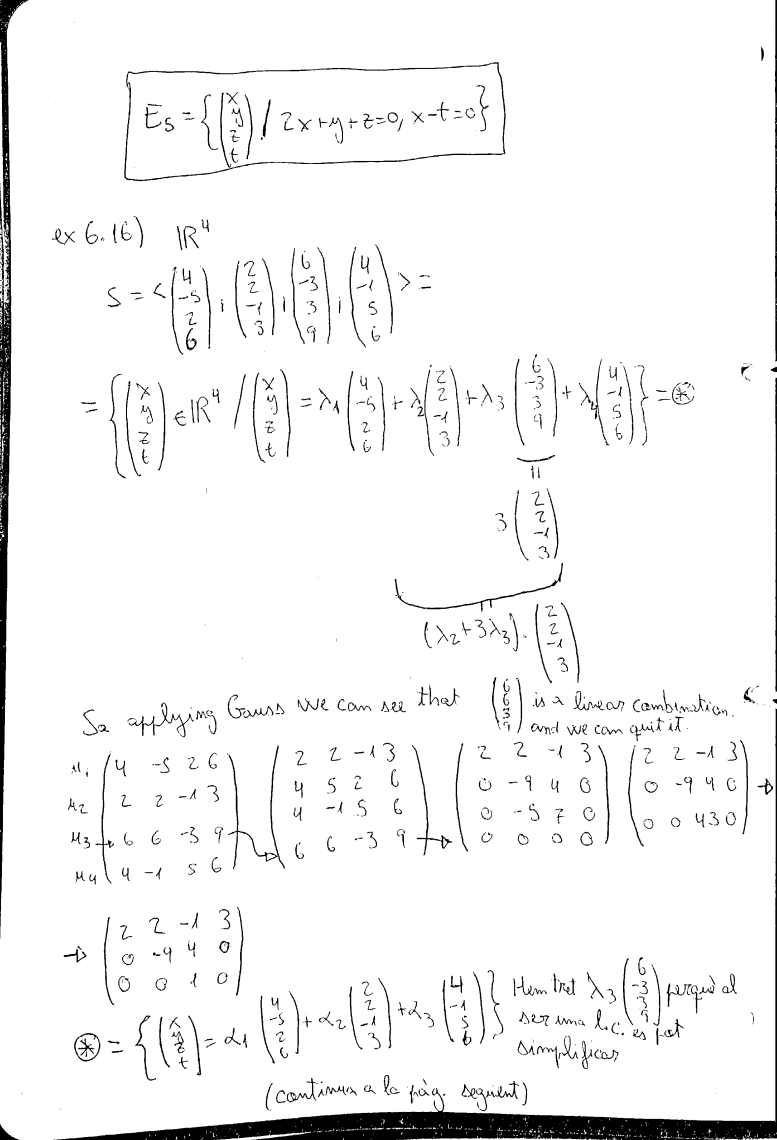 E_S = {(x y z t) / 2x+y+z=0, x-t=0}
ex 6.16) ℝ⁴
S = <(4 -5 2 6), (2 2 -1 3), (6 -3 3 9), (4 -1 5 6)> =
= {(x y z t) ∈ ℝ⁴ / (x y z t) = λ1 (4 -5 2 6) + λ2 (2 2 -1 3) + λ3 (6 -3 3 9) + λ4 (4 -1 5 6)} = ⊛
=
3 (2 2 -1 3)
=
(λ2+3λ3) · (2 2 -1 3)
So applying Gauss we can see that (6 6 3 9) is a linear combination.
and we can quit it.
M1 (4 -5 2 6) (2 2 -1 3) (2 2 -1 3) (2 2 -1 3)
M2 (2 2 -1 3) (4 5 2 6) (0 -9 4 0) (0 -9 4 0) →
M3 → (6 6 -3 9) (4 -1 5 6) (0 -5 7 0) (0 0 43 0)
M4 (4 -1 5 6) → (6 6 -3 9) → (0 0 0 0)
(2 2 -1 3)
→ (0 -9 4 0)
(0 0 1 0)
⊛ = {(x y z t) = α1 (4 -5 2 6) + α2 (2 2 -1 3) + α3 (4 -1 5 6)} Hem tret λ3 (6 -3 3 9) perquè al
ser una l.c. es pot
simplificar
(continua a la pàg. seguent)